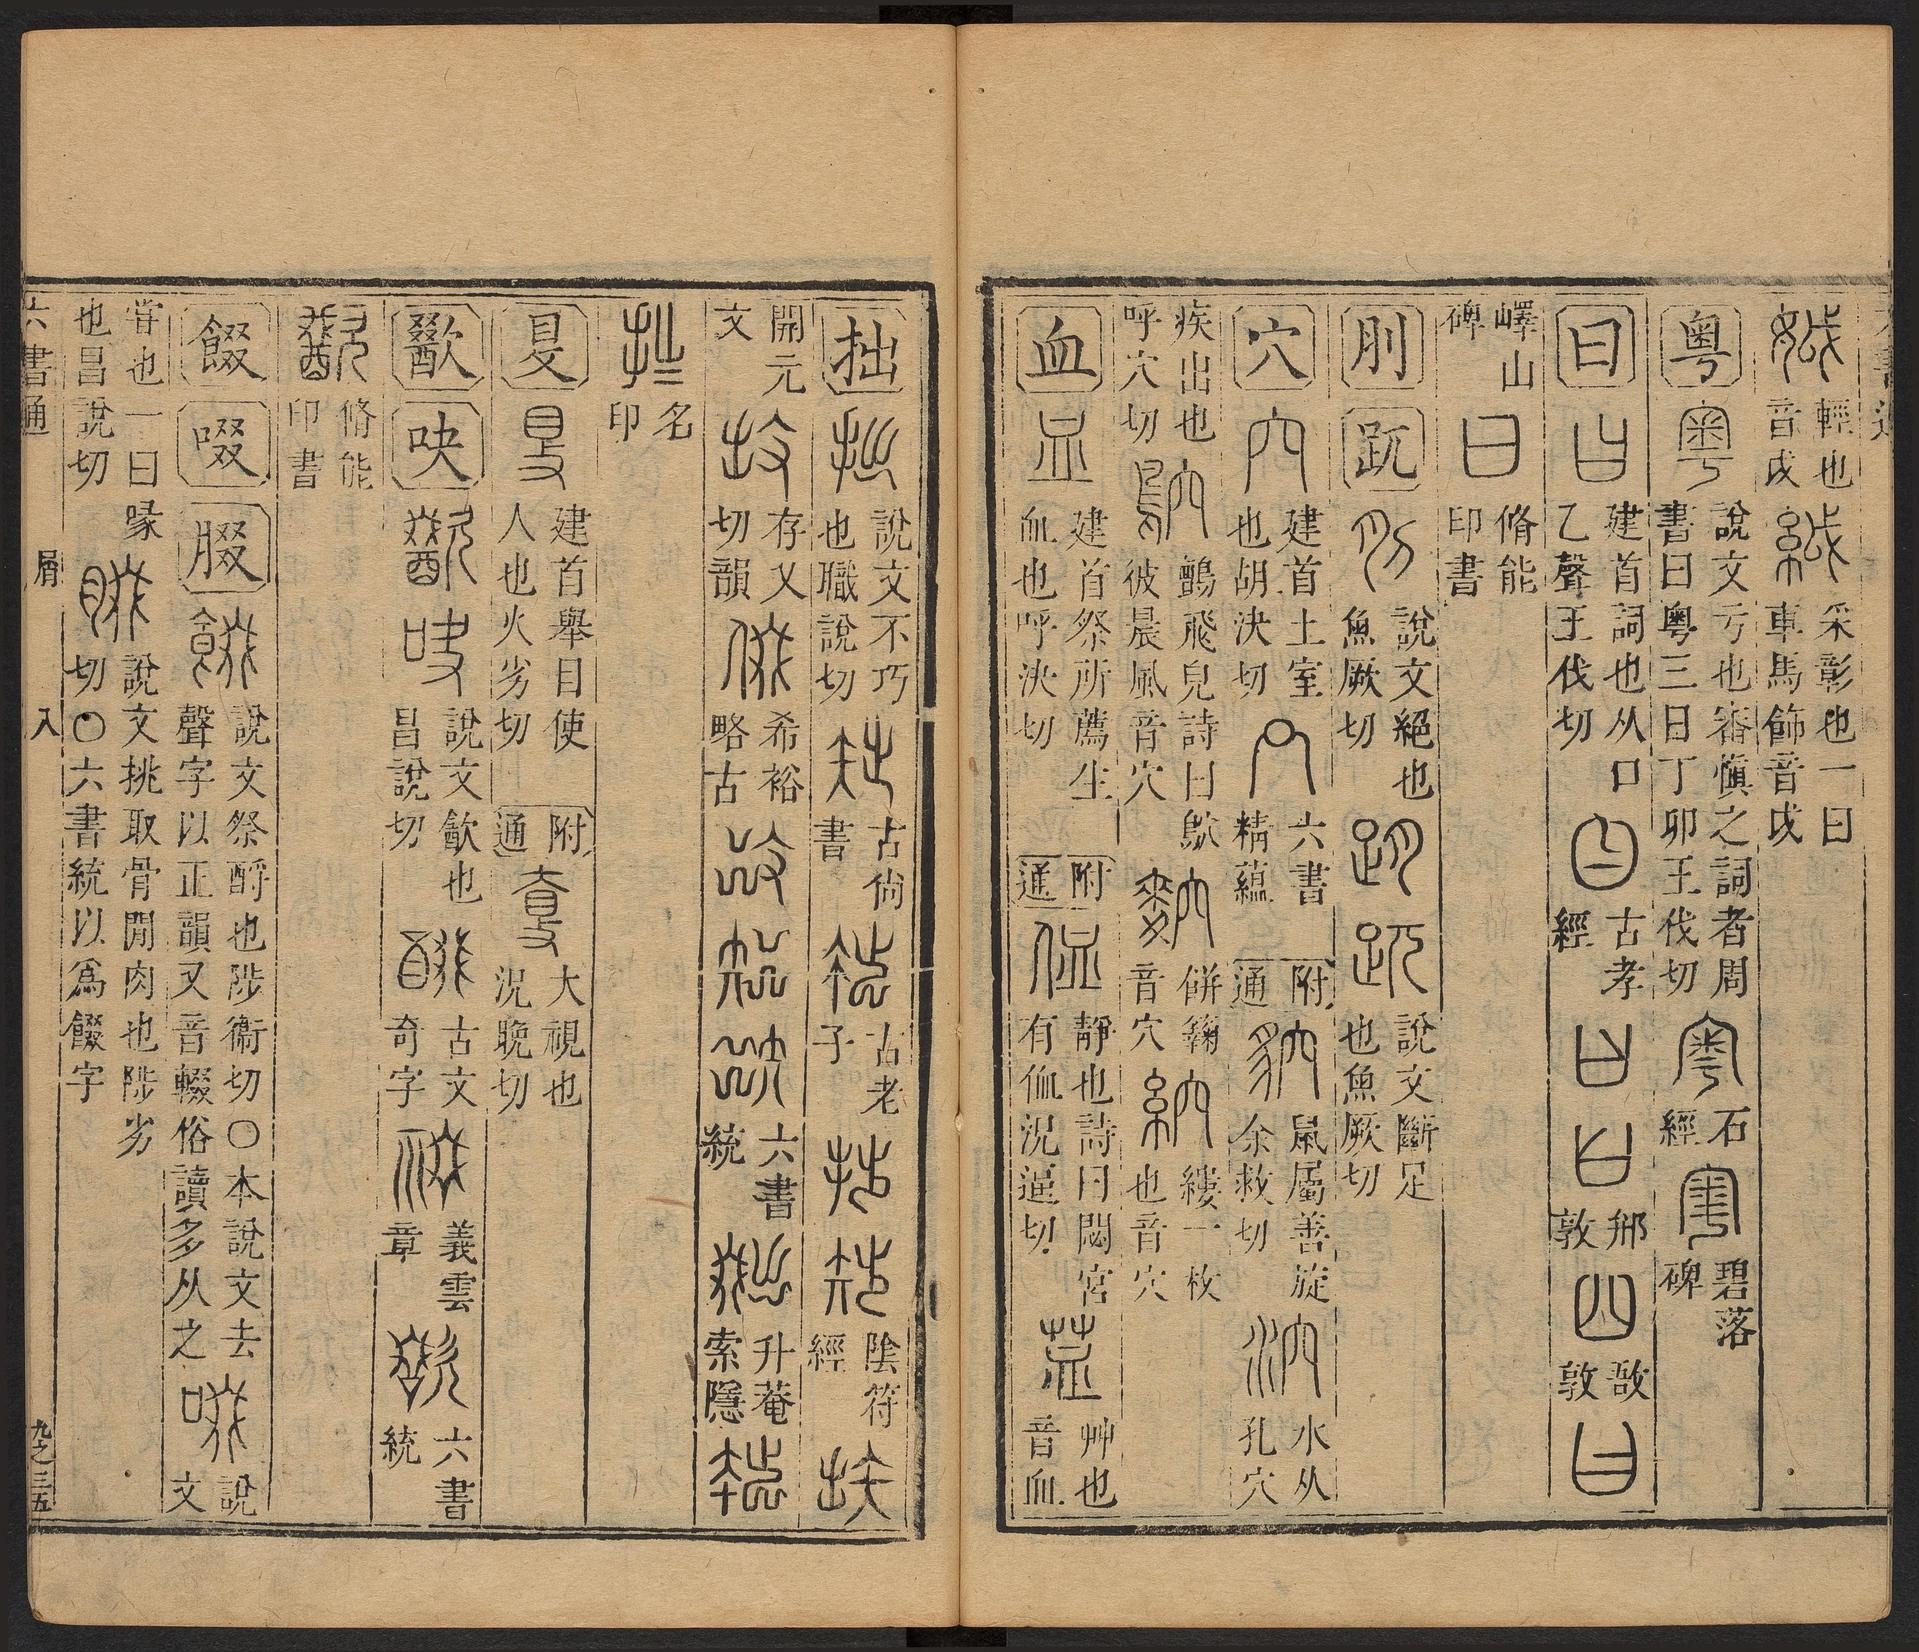 娍 輕也音戉 絨 采彰也一曰車馬飾音戉
粤 粤 說文亏也審愼之詞者周書曰粤三日丁卯王伐切 石經 碧落碑
曰 曰 建首詞也从口乙聲王伐切 古孝經 䢵敦 敔敦
嶧山碑 曰 脩能印書
刖 跀 刖 說文絕也魚厥切 跀 說文斷足也魚厥切
穴 穴 建首土室也胡決切 六書精蘊 附通 貁 鼠屬善旋余救切 泬 水从孔穴
疾出也呼穴切 鴥 鸇飛皃詩曰鴥彼晨風音穴 餅䴬音穴 縷一枚也音穴
血 血 建首祭所薦牲血也呼決切 附通 侐 靜也詩曰閟宮有侐況逼切 艸也音血
拙 拙 說文不巧也職說切 古尙書 古老子 陰符經
開元文 存乂切韻 希裕略古 六書統 升菴索隱
名印
𥄎 𥄎 建首舉目使人也火劣切 附通 大視也況晚切
歠 吷 歠 吷 說文㱃也昌說切 古文奇字 義雲章 六書統
歠 脩能印書
餟 啜 腏 餟 說文祭酹也陟衞切〇本說文去聲字以正韻又音輟俗讀多从之 啜 說文
嘗也一曰喙也昌說切 腏 說文挑取骨閒肉也陟劣切〇六書統以爲餟字
六書通 屑 入 九之三五